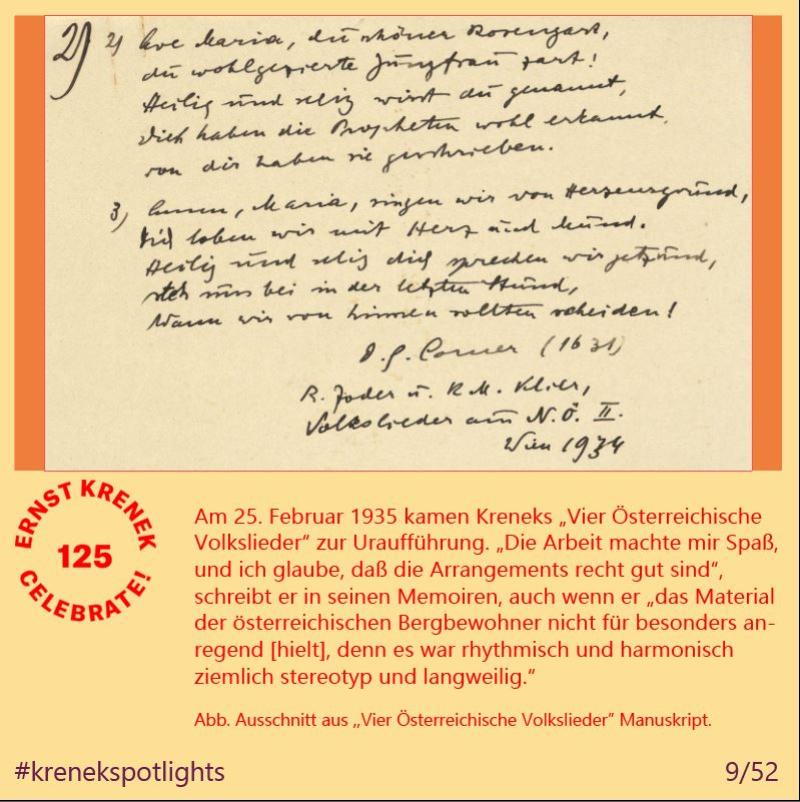 2) 2) Ave Maria, du schöner Rosengart,
du wohlgezierte Jungfrau zart!
Heilig und selig wirst du genannt,
dich haben die Propheten wohl erkannt,
von dir haben sie geschrieben.
3) Amen, Maria, singen wir von Herzensgrund,
dich loben wir mit Herz und Mund.
Heilig und selig dich sprechen wir jetzund,
steh uns bei in der letzten Stund,
Wann wir von hinnen sollten scheiden!
D. G. Corner (1631)
R. Zoder u. K. M. Klier,
Volkslieder aus N. Ö. II.
Wien 1934
ERNST KRENEK
125
CELEBRATE!
Am 25. Februar 1935 kamen Kreneks „Vier Österreichische
Volkslieder“ zur Uraufführung. „Die Arbeit machte mir Spaß,
und ich glaube, daß die Arrangements recht gut sind“,
schreibt er in seinen Memoiren, auch wenn er „das Material
der österreichischen Bergbewohner nicht für besonders an-
regend [hielt], denn es war rhythmisch und harmonisch
ziemlich stereotyp und langweilig.“
Abb. Ausschnitt aus „Vier Österreichische Volkslieder” Manuskript.
#krenekspotlights
9/52